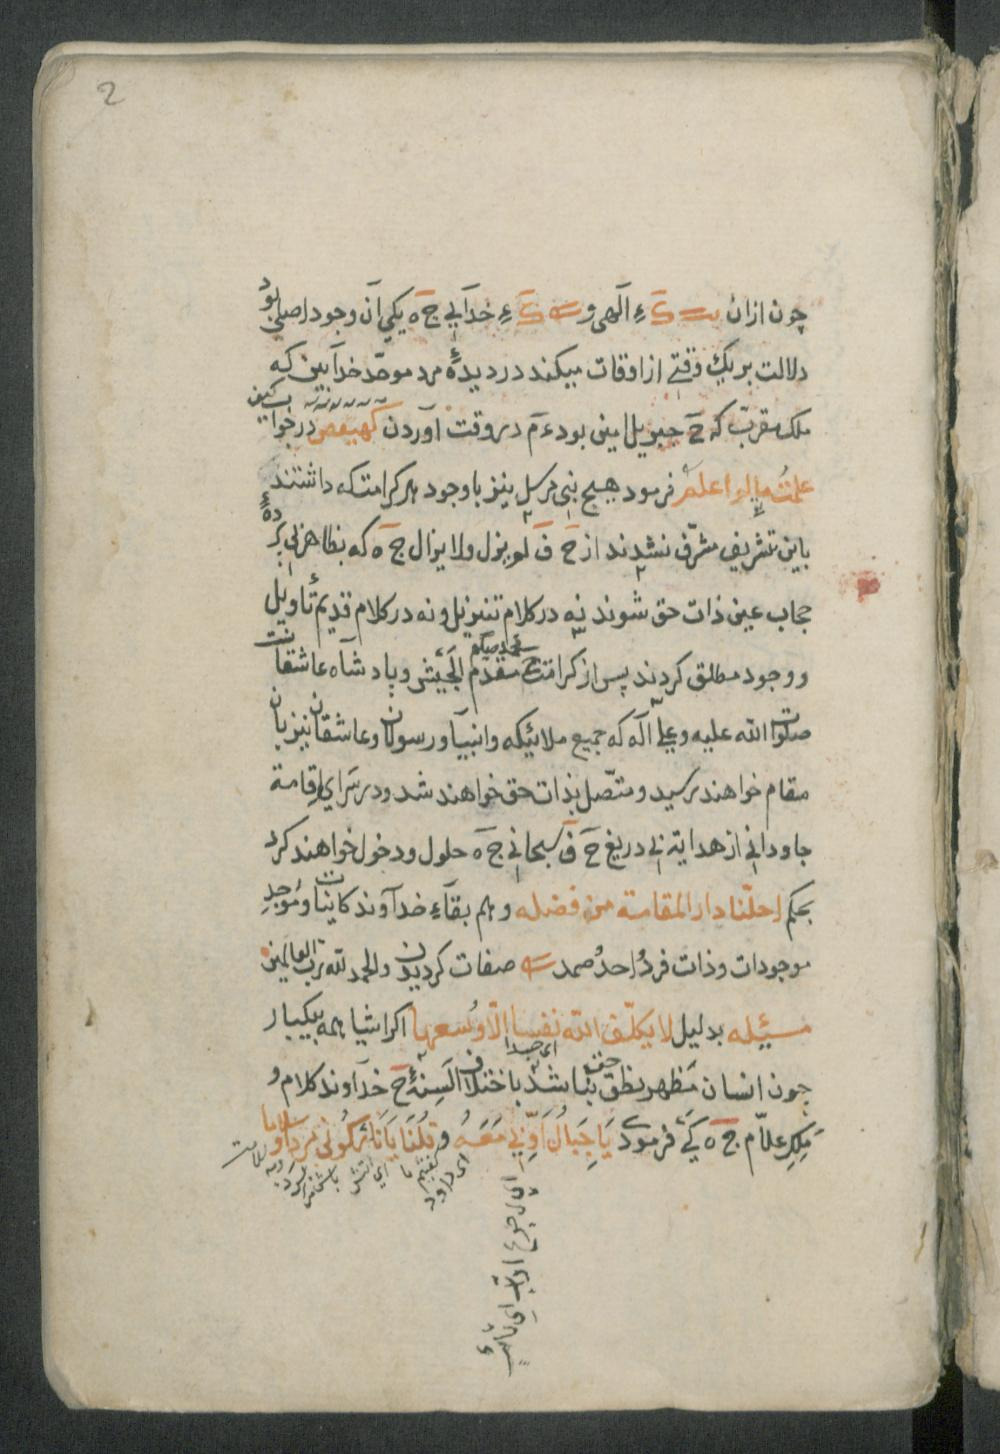 2
چون ازان ءِ الٓهی و ءِ خدآیی جٓ ه یکی آن وجود اصلی بود
دلالت بر یك وقتی از اوقات میکند در دیدهٔ مرد موحّد خدآبین که
ملك مقرب که حٓ جبریل امین بود ءم در وقت آوردن کهیعص در جواب
علمتُ مالم اعلم فرمود هیچ نبی مرسل نیز با وجود هر کرامت که داشتند
باین تشریف مشرّف نشدند از حٓ قٓ لم یزل ولا یزال جٓ ه که بظاهر بی پرده
حجاب عین ذات حق شوند نه در کلام تنزیل و نه در کلام قدیم تأویل
و وجود مطلق کردند پس از کرامت مقدّم الجیش و پادشاه عاشقان
صلوات الله علیه و علی آله که جمیع ملائیکه و انبیآ و رسولان و عاشقان نیز بان
مقام خواهند رسید و متّصل بذات حق خواهند شد و در سرای اقامة
جاودانی از هدایة بی دریغ حٓ قٓ سبحانی جٓ ه حلول و دخول خواهند کرد
بحکم احلّنا دار المقامة من فضله و هم بقآءِ خدآوند کاینات و مُوجدِ
موجودات و ذات فردُ احدُ صمد صفات کردیدن والحمد لله رب العالمین
مسئیله بدلیل لا یکلّف الله نفسا إلّا وُسعها اکر اشیا همه بیکبار
چون انسان مظهر نطق حق نباشد باختلاف السنهٔ حٓ خدآوند کلام و
مَلِكِ علّام جٓ ه کی فرمودی یَا جِبَالُ اَوِّبِی مَعَهُ و قُلنَا یَا نَارُ کُونی بَردًا و سلاما
ای داود کفتیم ما ای آتش باش سرد و به سلامت